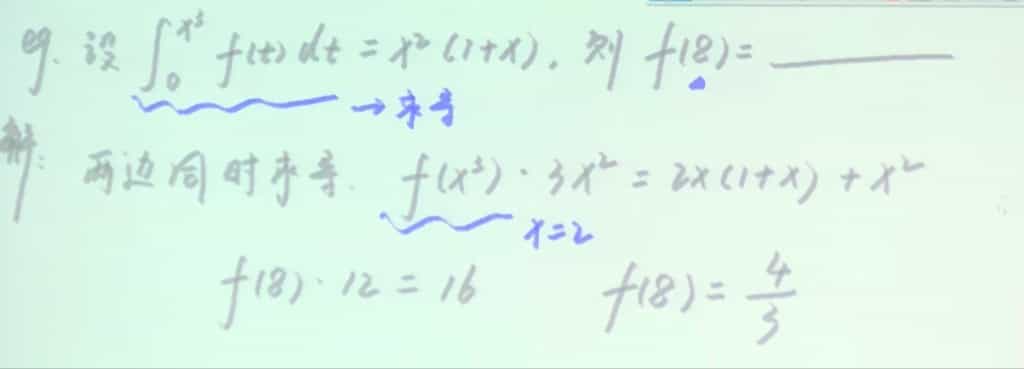 eg. 设 ∫₀^{x³} f(t) dt = x² (1+x), 则 f(8) = ______
→ 求导
解: 两边同时求导. f(x³) · 3x² = 2x(1+x) + x²
x=2
f(8) · 12 = 16 f(8) = 4/3